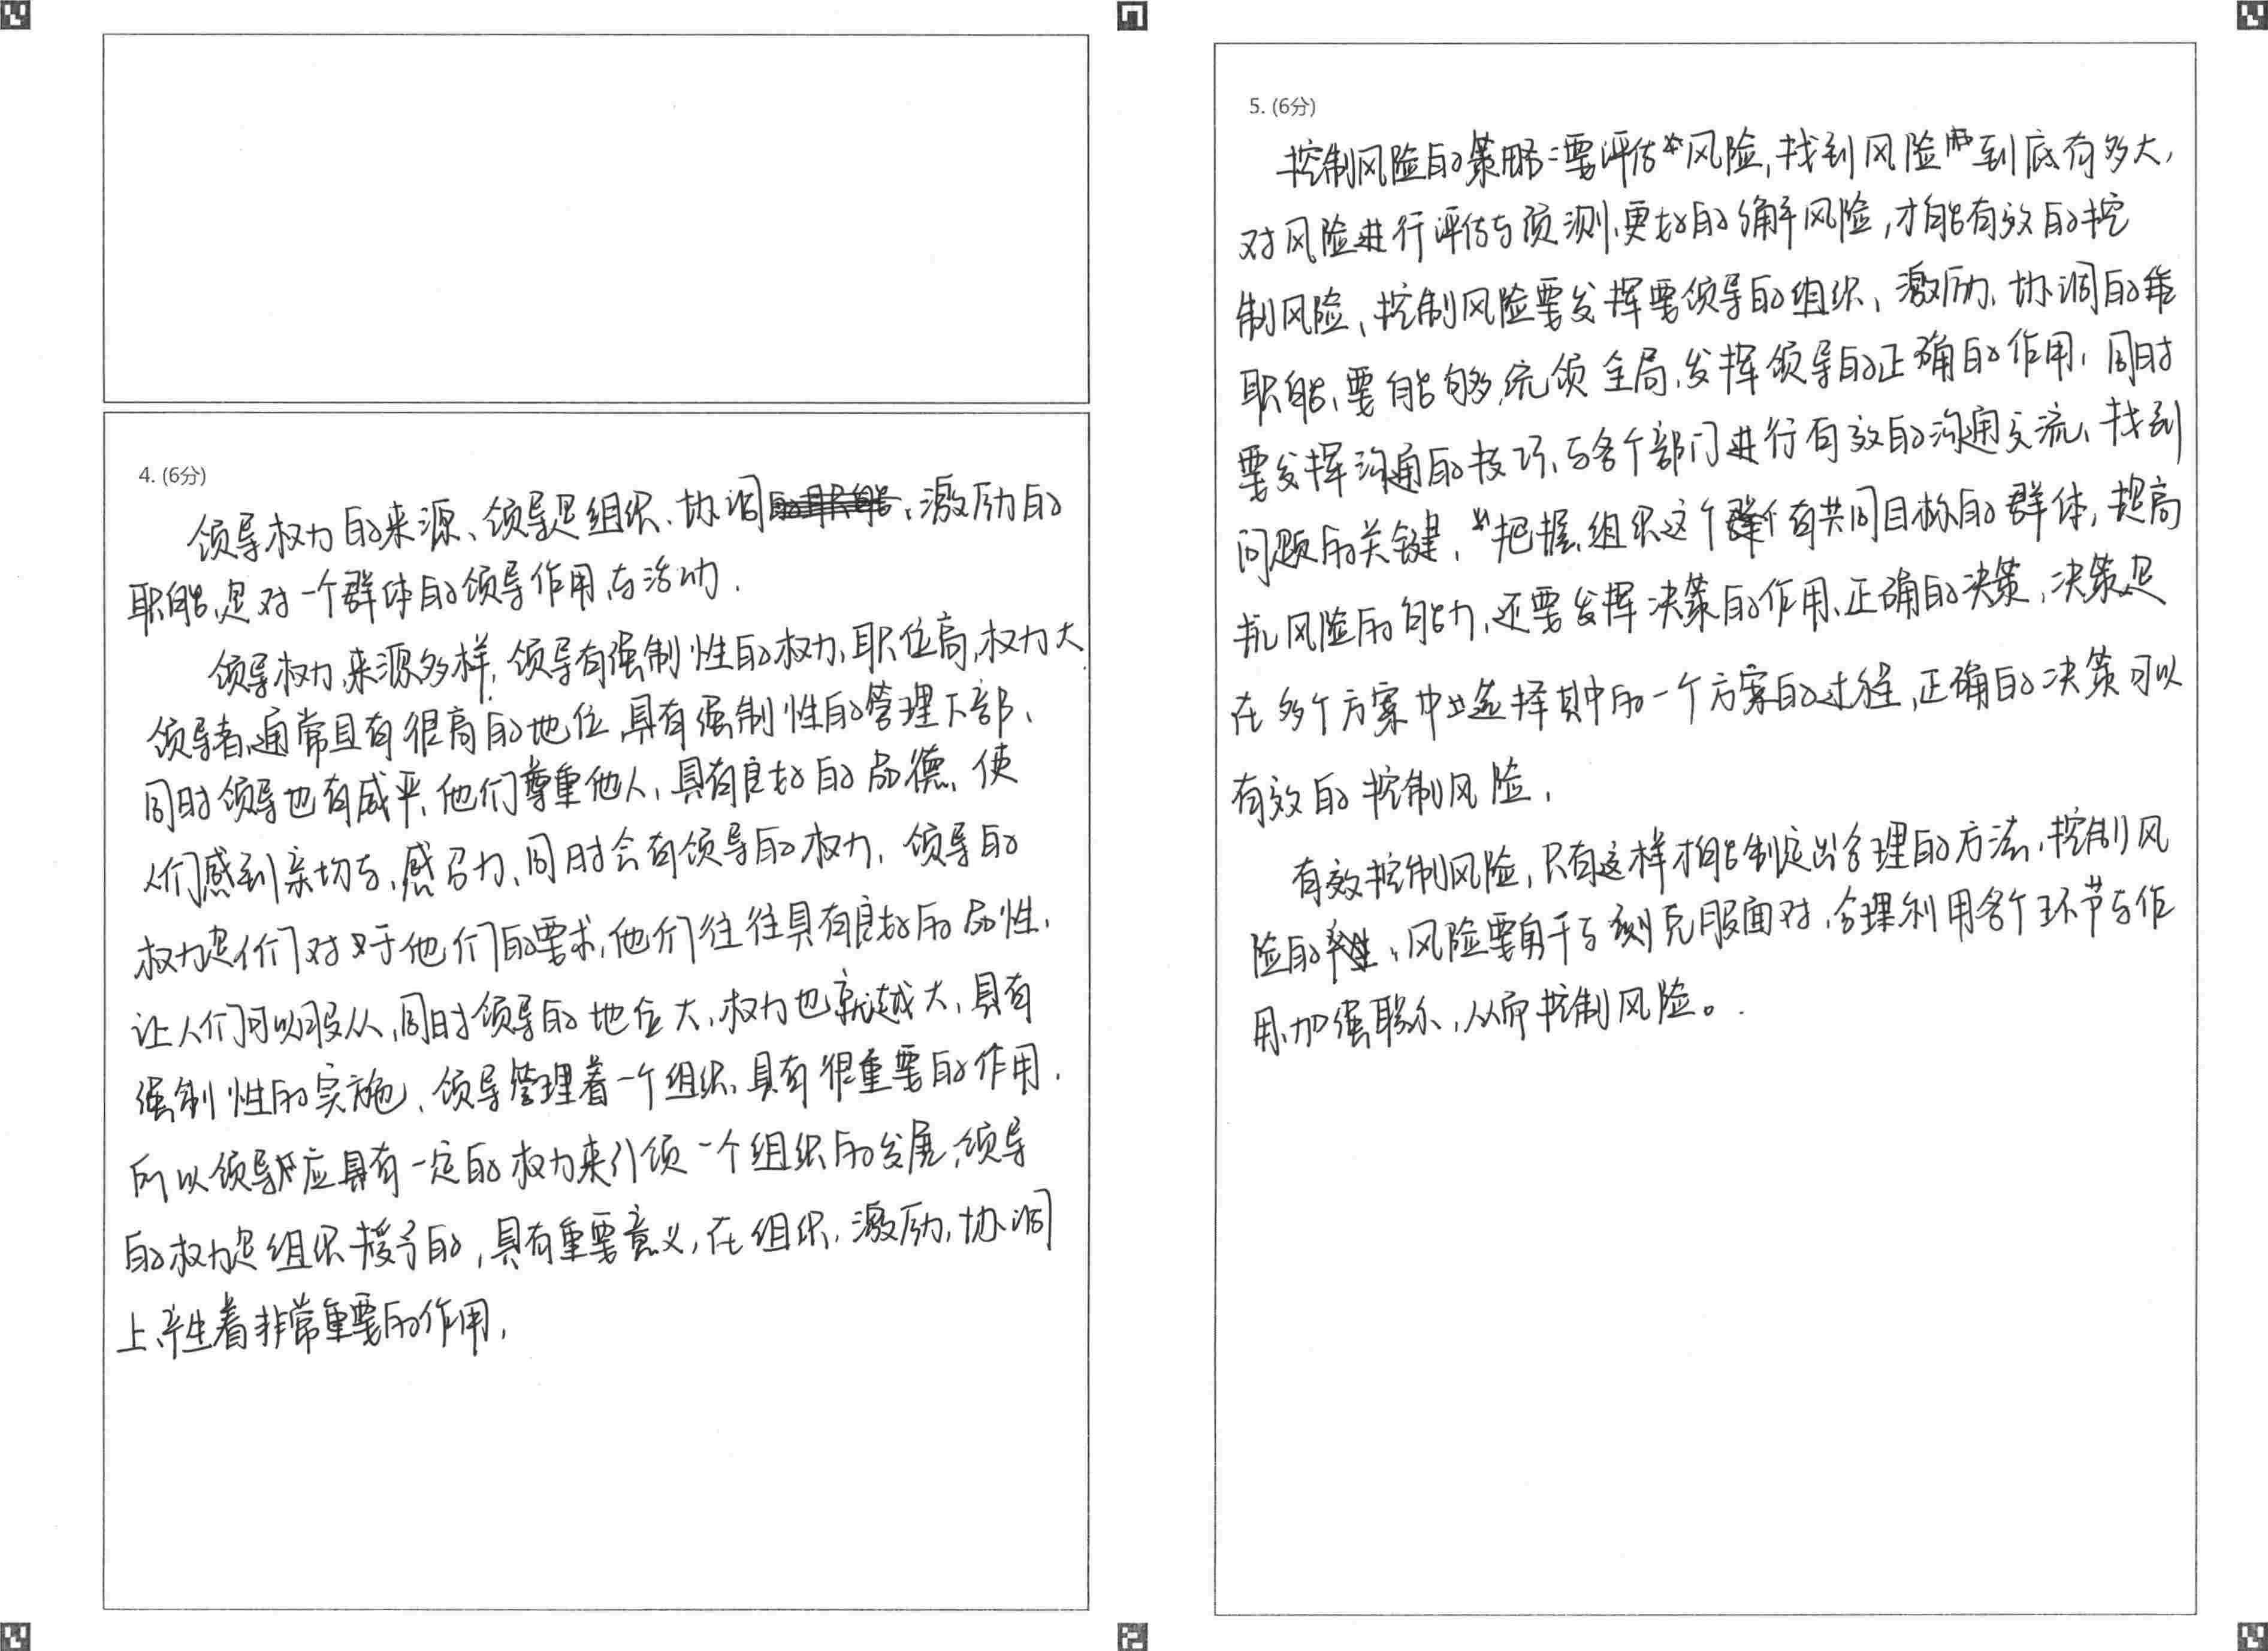 4. (6分)
领导权力的来源、领导是组织、协调、激励的
职能,是对一个群体的领导作用与活动.
领导权力,来源多样,领导有强制性的权力,职位高,权力大
领导者,通常且有很高的地位,具有强制性的管理下部、
同时领导也有威严,他们尊重他人,具有良好的品德、使
人们感到亲切与,感召力、同时会有领导的权力、领导的
权力是们对对于他们的要求,他们往往具有良好的品性,
让人们可以服从,同时领导的地位大,权力也就越大,具有
强制性的实施、领导管理着一个组织,具有很重要的作用.
所以领导应具有一定的权力来引领一个组织的发展,领导
的权力是组织授予的,具有重要意义,在组织,激励,协调
上,产生着非常重要的作用,
5. (6分)
控制风险的策略:要评估风险,找到风险到底有多大,
对风险进行评估与预测,更好的了解风险,才能有效的控
制风险、控制风险要发挥要领导的组织、激励、协调的
职能,要能够,统领全局,发挥领导的正确的作用,同时
要发挥沟通的技巧、与各个部门进行有效的沟通交流、找到
问题的关键,把握,组织这个有共同目标的群体,提高
抗风险的能力,还要发挥决策的作用、正确的决策,决策是
在多个方案中选择其中的一个方案的过程,正确的决策可以
有效的控制风险,
有效控制风险,只有这样才能制定出合理的方法,控制风
险的产生,风险要时刻克服面对,合理利用各个环节与作
用,加强联系,从而控制风险。